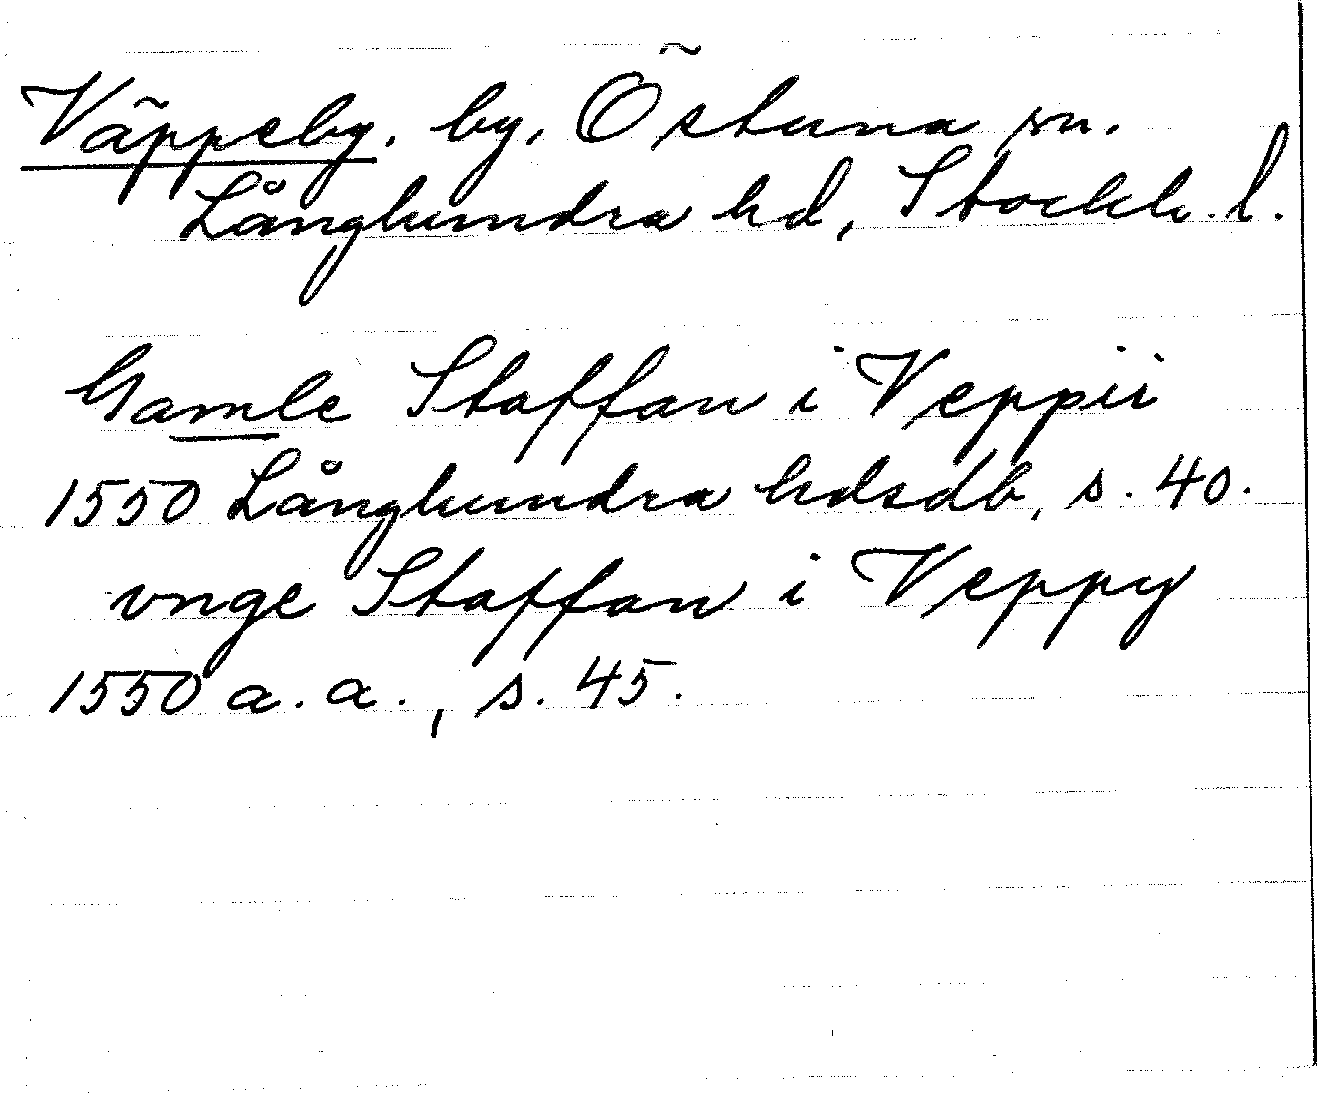 Väppeby. by, Östuna sn.
Långhundra hd, Stockh. l.
Gamle Staffan i Veppii
1550 Långhundra hdsdb, s. 40.
vnge Staffan i Veppy
1550 a. a., s. 45.